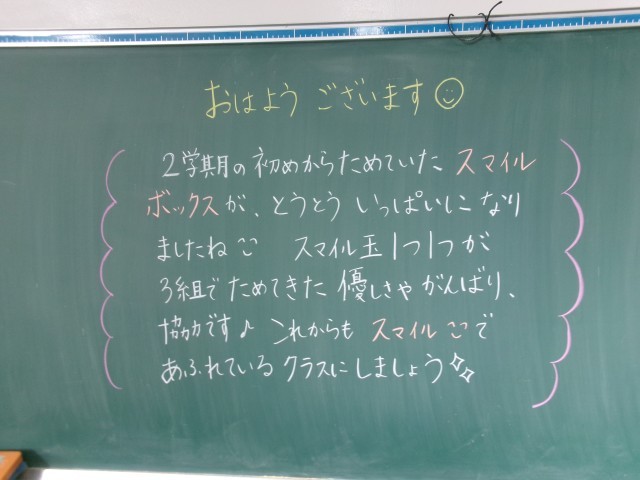 おはようございます
2学期の初めからためていた スマイル
ボックスが、とうとう いっぱいに なり
ましたね スマイル玉1つ1つが
3組で ためてきた 優しさや がんばり、
協力です♪ これからも スマイル で
あふれている クラスにしましょう